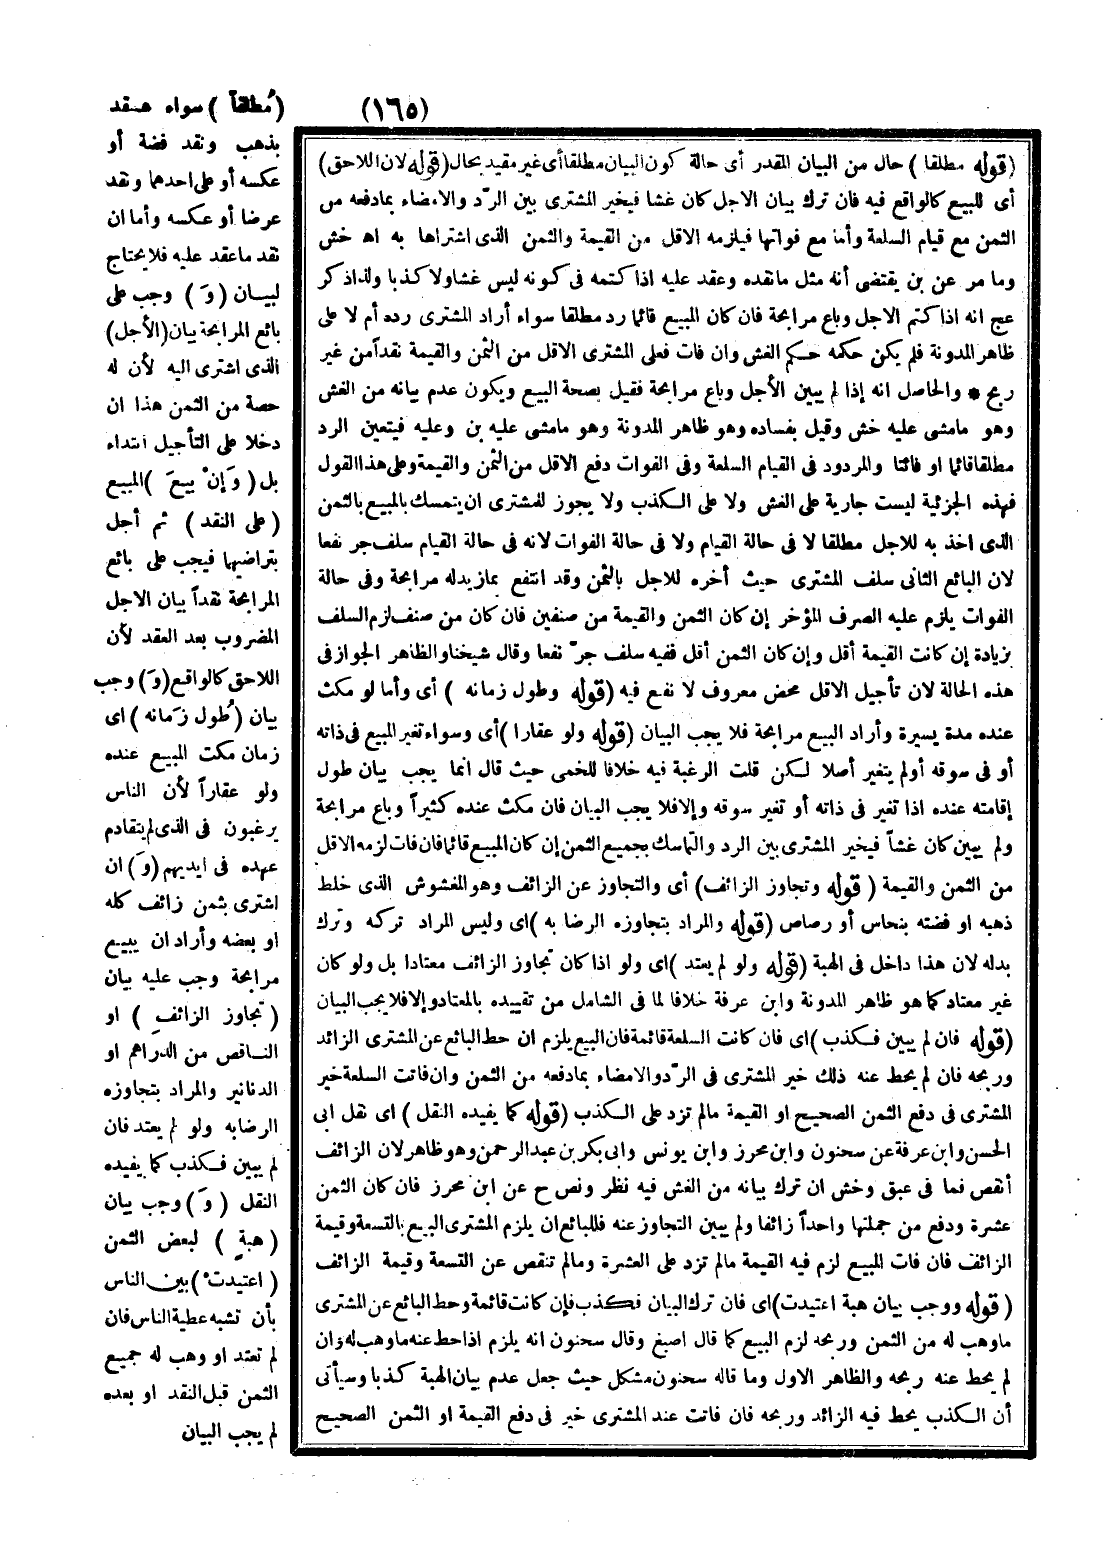 (١٦٥)
(قوله مطلقا) حال من البيان المقدر أى حالة كون البيان مطلقا أى غير مقيد بحال (قوله لان اللاحق)
أى للبيع كالواقع فيه فان ترك بيان الاجل كان غشا فيخير المشترى بين الردّ والامضاء بمادفعه من
الثمن مع قيام السلعة وأما مع فواتها فيلزمه الاقل من القيمة والثمن الذى اشتراها به اه خش
وما مر عن بن يقتضى أنه مثل مانقده وعقد عليه اذا كتمه فى كونه ليس غشا ولا كذبا ولذا ذكر
عج انه اذا كتم الاجل وباع مرابحة فان كان المبيع قائما رد مطلقا سواء أراد المشترى رده أم لا على
ظاهر المدونة فلم يكن حكمه حكم الغش وان فات فعلى المشترى الاقل من الثمن والقيمة نقداً من غير
ربح * والحاصل انه إذا لم يبين الأجل وباع مرابحة فقيل بصحة البيع ويكون عدم بيانه من الغش
وهو مامشى عليه خش وقيل بفساده وهو ظاهر المدونة وهو مامشى عليه بن وعليه فيتعين الرد
مطلقا قائما او فائتا والمردود فى القيام السلعة وفى الفوات دفع الاقل من الثمن والقيمة وعلى هذا القول
فهذه الجزئية ليست جارية على الغش ولا على الكذب ولا يجوز للمشترى ان يتمسك بالمبيع بالثمن
الذى اخذ به للاجل مطلقا لا فى حالة القيام ولا فى حالة الفوات لانه فى حالة القيام سلف جر نفعا
لان البائع الثانى سلف المشترى حيث أخره للاجل بالثمن وقد انتفع بمازيدله مرابحة وفى حالة
الفوات يلزم عليه الصرف المؤخر إن كان الثمن والقيمة من صنفين فان كان من صنف لزم السلف
بزيادة إن كانت القيمة أقل وإن كان الثمن أقل ففيه سلف جرّ نفعا وقال شيخنا والظاهر الجواز فى
هذه الحالة لان تأجيل الاقل محض معروف لا نفع فيه (قوله وطول زمانه) أى وأما لو مكث
عنده مدة يسيرة وأراد البيع مرابحة فلا يجب البيان (قوله ولو عقارا) أى وسواء تغير المبيع فى ذاته
أو فى سوقه أولم يتغير أصلا لكن قلت الرغبة فيه خلافا للخمى حيث قال انما يجب بيان طول
إقامته عنده اذا تغير فى ذاته أو تغير سوقه وإلا فلا يجب البيان فان مكث عنده كثيراً وباع مرابحة
ولم يبين كان غشاً فيخير المشترى بين الرد والتماسك بجميع الثمن إن كان المبيع قائما فان فات لزمه الاقل
من الثمن والقيمة (قوله وتجاوز الزائف) أى والتجاوز عن الزائف وهو المغشوش الذى خلط
ذهبه او فضته بنحاس أو رصاص (قوله والمراد بتجاوزه الرضا به) اى وليس المراد تركه وترك
بدله لان هذا داخل فى الهبة (قوله ولو لم يعتد) اى ولو اذا كان تجاوز الزائف معتادا بل ولو كان
غير معتاد كما هو ظاهر المدونة وابن عرفة خلافا لما فى الشامل من تقييده بالمعتاد وإلا فلا يجب البيان
(قوله فان لم يبين فكذب) اى فان كانت السلعة قائمة فان البيع يلزم ان حط البائع عن المشترى الزائد
وربحه فان لم يحط عنه ذلك خير المشترى فى الردّ والامضاء بمادفعه من الثمن وان فاتت السلعة خير
المشترى فى دفع الثمن الصحيح او القيمة مالم تزد على الكذب (قوله كما يفيده النقل) اى نقل ابى
الحسن وابن عرفة عن سحنون وابن محرز وابن يونس وابى بكر بن عبد الرحمن وهو ظاهر لان الزائف
أنقص فما فى عبق وخش ان ترك بيانه من الغش فيه نظر ونص ح عن ابن محرز فان كان الثمن
عشرة ودفع من جملتها واحداً زائفا ولم يبين التجاوز عنه فللبائع ان يلزم المشترى البيع بالتسعة وقيمة
الزائف فان فات المبيع لزم فيه القيمة مالم تزد على العشرة ومالم تنقص عن التسعة وقيمة الزائف
(قوله ووجب بيان هبة اعتيدت) اى فان ترك البيان فكذب فإن كانت قائمة وحط البائع عن المشترى
ماوهب له من الثمن وربحه لزم البيع كما قال اصبغ وقال سحنون انه يلزم اذا حط عنه ماوهب له وان
لم يحط عنه ربحه والظاهر الاول وما قاله سحنون مشكل حيث جعل عدم بيان الهبة كذبا وسيأتى
أن الكذب يحط فيه الزائد وربحه فان فاتت عند المشترى خير فى دفع القيمة او الثمن الصحيح
(مُطلقاً) سواء عقد
بذهب ونقد فضة أو
عكسه أو على احدهما ونقد
عرضا أو عكسه وأما ان
نقد ماعقد عليه فلا يحتاج
لبيان (وَ) وجب على
بائع المرابحة بيان (الأجل)
الذى اشترى اليه لأن له
حصة من الثمن هذا ان
دخلا على التأجيل ابتداء
بل (وَإنْ بيعَ) المبيع
(على النقد) ثم أجل
بتراضيها فيجب على بائع
المرابحة نقداً بيان الاجل
المضروب بعد العقد لأن
اللاحق كالواقع (وَ) وجب
بيان (طُول زَمانه) اى
زمان مكث المبيع عنده
ولو عقاراً لأن الناس
يرغبون فى الذى لم يتقادم
عهده فى ايديهم (وَ) ان
اشترى بثمن زائف كله
او بعضه وأراد ان يبيع
مرابحة وجب عليه بيان
(تجاوز الزائفِ) او
الناقص من الدراهم او
الدنانير والمراد بتجاوزه
الرضا به ولو لم يعتد فان
لم يبين فكذب كما يفيده
النقل (وَ) وجب بيان
(هبةٍ) لبعض الثمن
(اعتيدتْ) بين الناس
بأن تشبه عطية الناس فان
لم تعتد او وهب له جميع
الثمن قبل النقد او بعده
لم يجب البيان